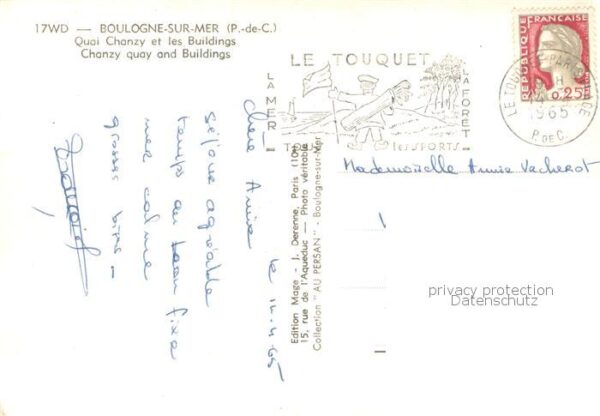 17WD — BOULOGNE-SUR-MER (P.-de-C.)
Quai Chanzy et les Buildings
Chanzy quay and Buildings
le 14.4.65
chère Annie
séjour agréable
temps au beau fixe
mer calme
grosses bises -
Edition Mage - J. Derenne, Paris (10e)
15, rue de l'Aqueduc — Photo véritable
Collection "AU PERSAN" - Boulogne-sur-Mer
LE TOUQUET
LA MER
LA FORÊT
TOUS les SPORTS
REPUBLIQUE FRANÇAISE
0,25
LE TOUQUET-PARIS-PLAGE
1965
P. DE C.
Mademoiselle Annie Vacherot
privacy protection
Datenschutz